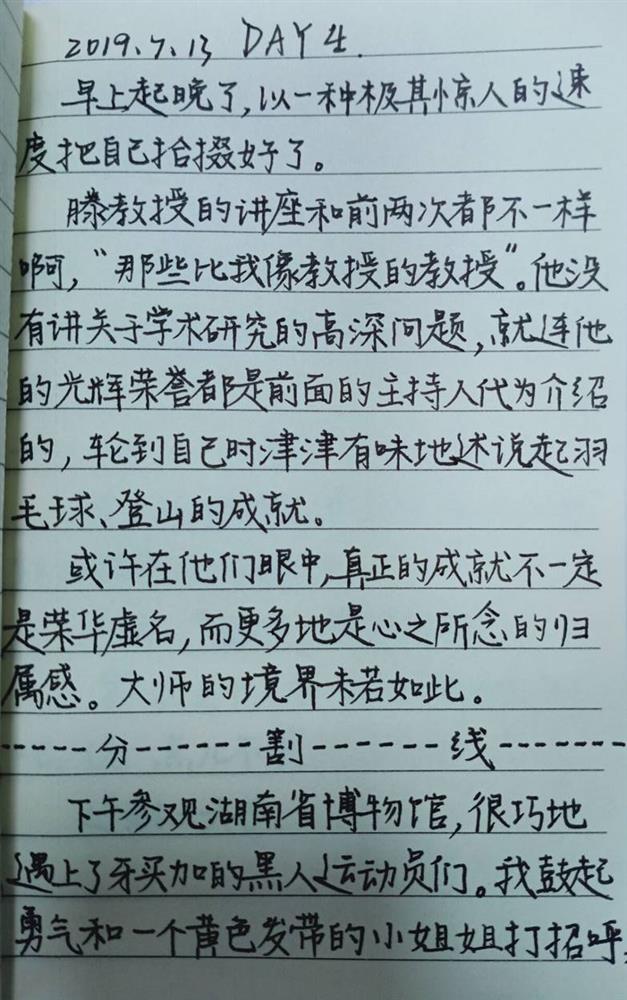 2019.7.13 DAY 4.
早上起晚了,以一种极其惊人的速
度把自己拾掇好了。
滕教授的讲座和前两次都不一样
啊,“那些比我像教授的教授”。他没
有讲关于学术研究的高深问题,就连他
的光辉荣誉都是前面的主持人代为介绍
的,轮到自己时津津有味地述说起羽
毛球、登山的成就。
或许在他们眼中,真正的成就不一定
是荣华虚名,而更多地是心之所念的归
属感。大师的境界未若如此。
-----分------割------线-------
下午参观湖南省博物馆,很巧地
遇上了牙买加的黑人运动员们。我鼓起
勇气和一个黄色发带的小姐姐打招呼,